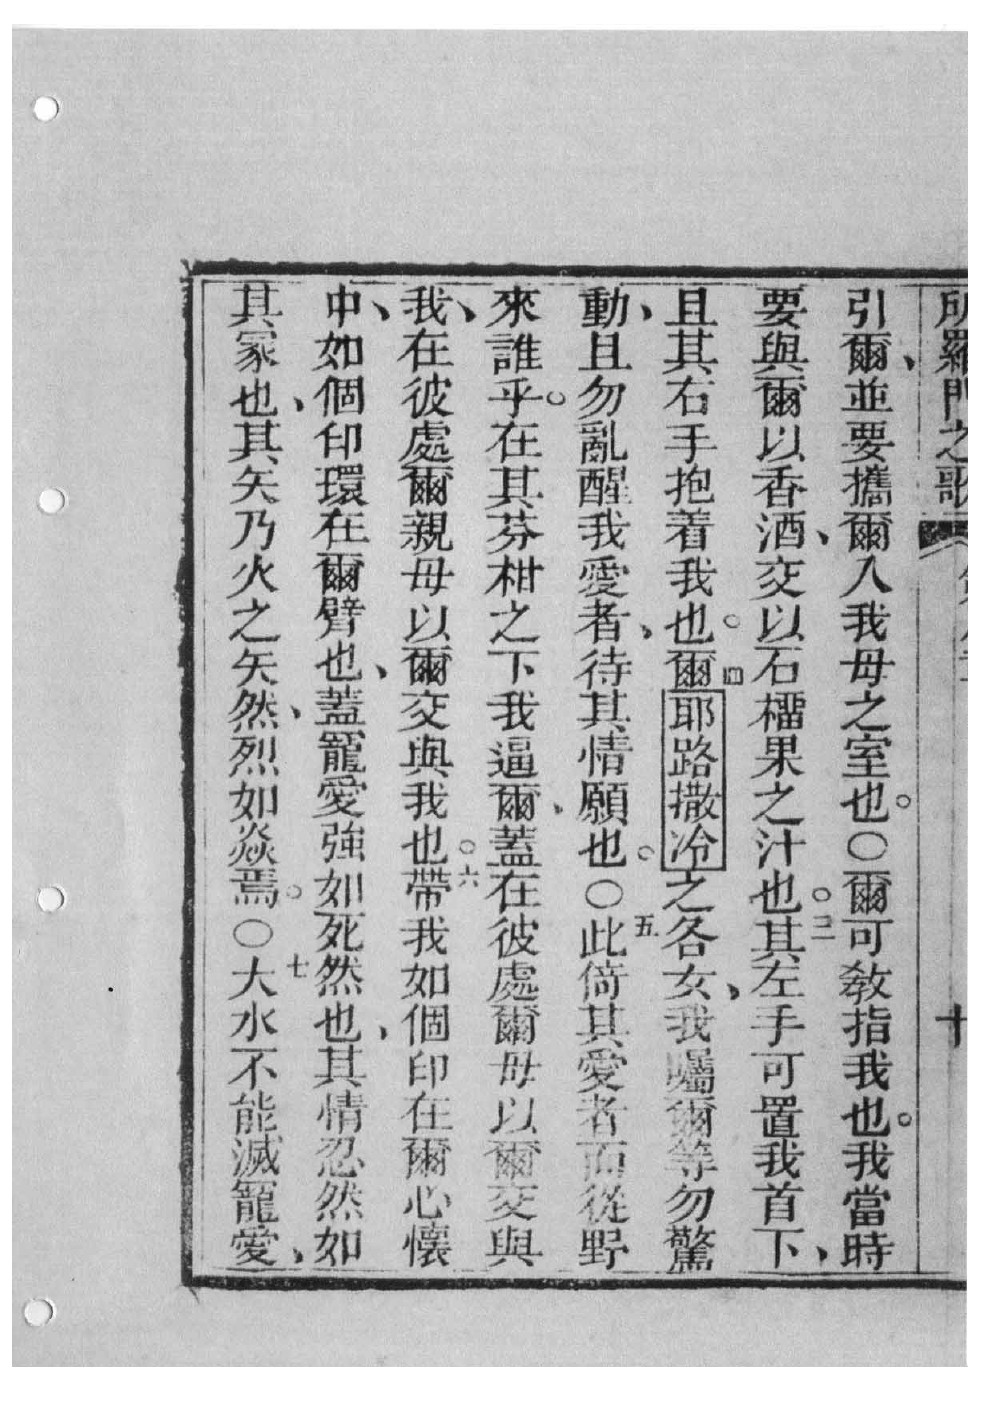 所羅門之歌
十
引爾、並要攜爾入我母之室也。〇爾可敎指我也。我當時
要與爾以香酒、交以石榴果之汁也。三其左手可置我首下、
且其右手抱着我也。四爾耶路撒冷之各女、我囑爾等勿驚
動、且勿亂醒我愛者、待其情願也。〇五此倚其愛者而從野
來誰乎。在其芬柑之下我逼爾、蓋在彼處爾母以爾交與
我、我在彼處爾親母以爾交與我也。六帶我如個印在爾心懷
中、如個印環在爾臂也、蓋寵愛強如死然也、其情忍然如
其冢也、其矢乃火之矢然、烈如焱焉。〇七大水不能滅寵愛、